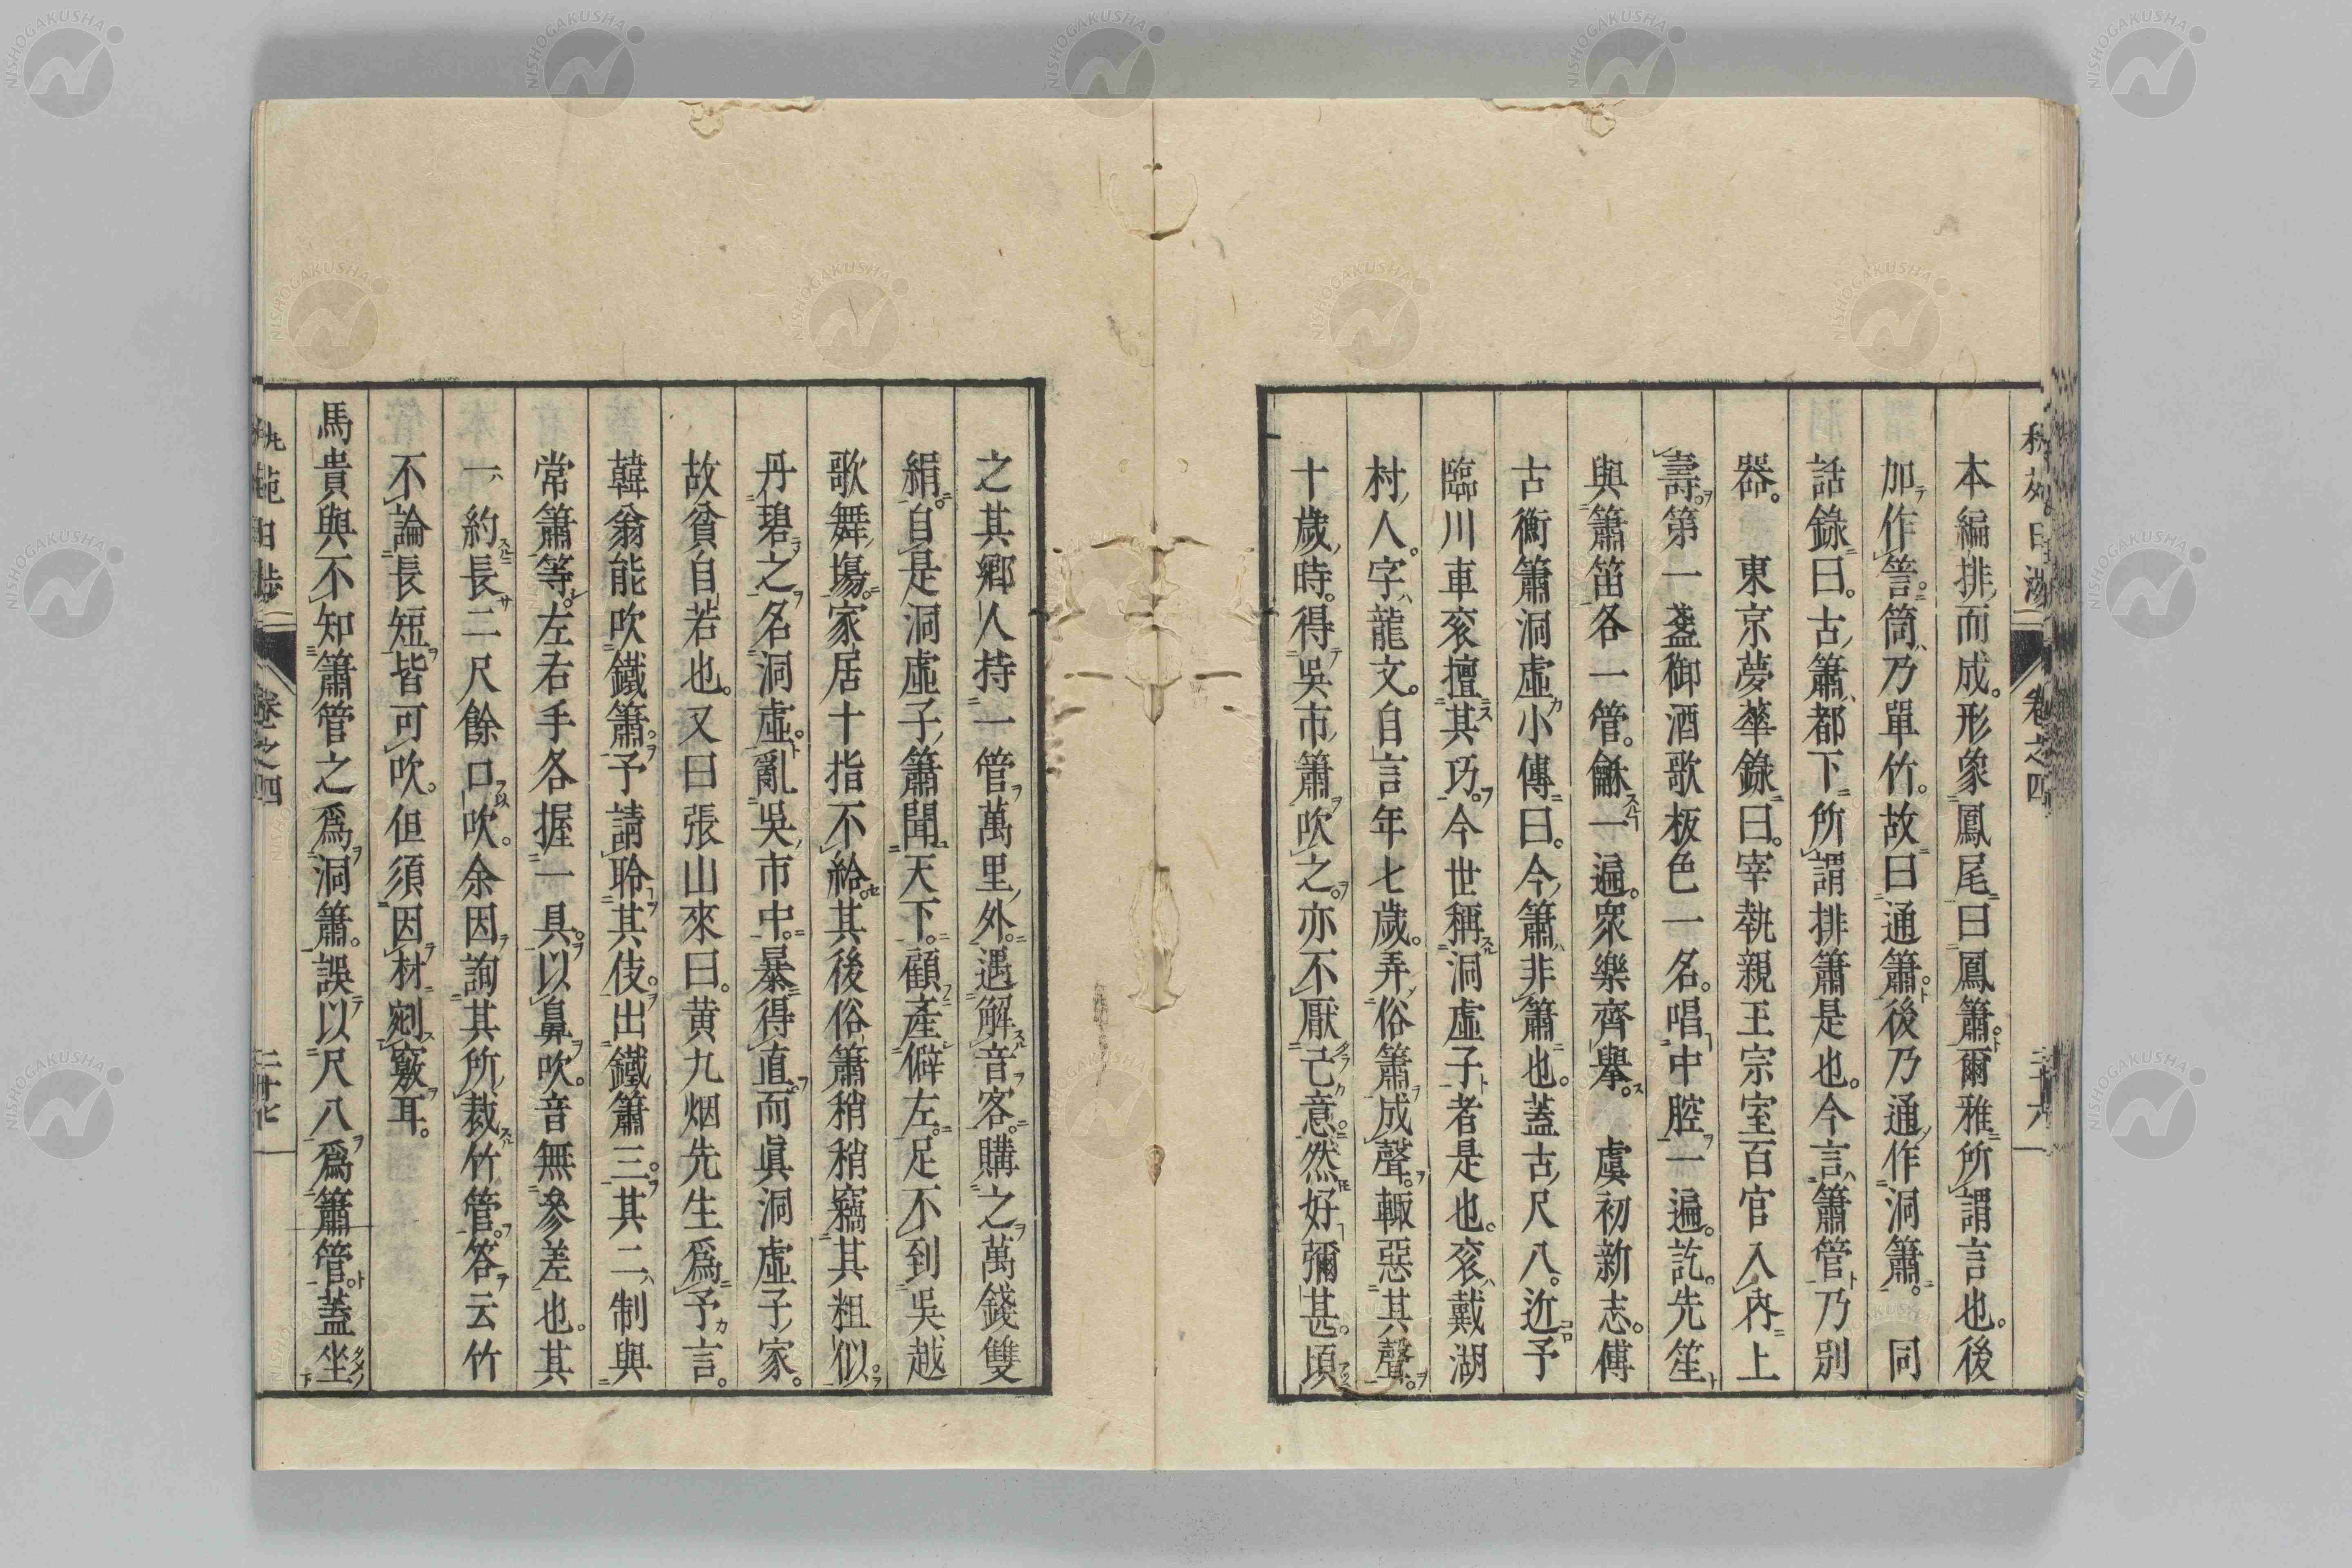 本編排而成。形象鳳尾曰鳳簫。爾雅所謂言也。後
加作䇾。筒乃單竹。故曰通簫。後乃通作洞簫。 同
話錄曰。古簫都下所謂排簫是也。今言簫管乃別
器。 東京夢華錄曰。宰執親王宗室百官入內上
壽。第一盞御酒歌板色一名。唱中腔一遍。訖。先笙
與簫笛各一管。龢一遍。衆樂齊擧。 虞初新志。傅
古衡簫洞虛小傳曰。今簫非簫也。蓋古尺八。近予
臨川車衮擅其巧。今世稱洞虛子者是也。衮戴湖
村人。字龍文。自言年七歲。弄俗簫成聲。輙惡其聲。
十歲時。得吳市簫吹之。亦不厭己意。然好彌甚。頃
之其鄉人持一管萬里外。遇解音客。購之萬錢雙
絹。自是洞虛子簫聞天下。顧產僻左。足不到吳越
歌舞塲。家居十指不給。其後俗簫稍稍竊其粗似。
丹碧之名洞虛。亂吳市中。暴得直而眞洞虛子家。
故貧自若也。又曰張山來曰。黄九烟先生爲予言。
韓翁能吹鐵簫。予請聆其伎。出鐵簫三。其二制與
常簫等。左右手各握一具。以鼻吹。音無參差也。其
一約長二尺餘口吹。余因詢其所裁竹管。答云竹
不論長短皆可吹。但須因材剜竅耳。
馬貴與不知簫管之爲洞簫。誤以尺八爲簫管。蓋坐
卷之四
卷之四